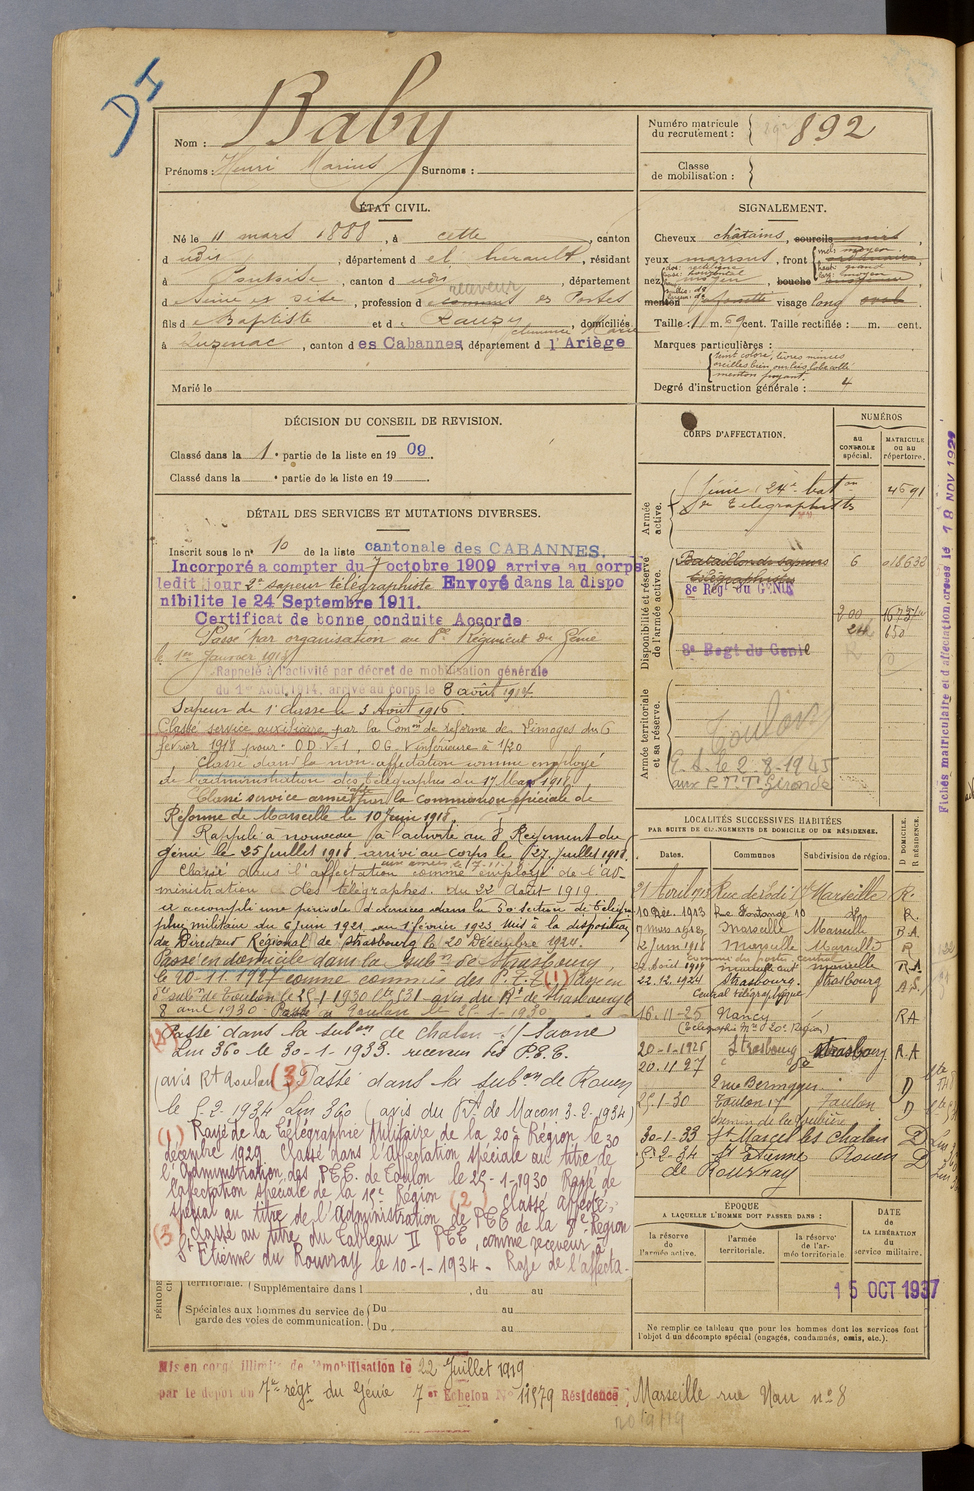 DI
Nom : Baby
Prénoms : Henri Marius Surnoms :
Numéro matricule du recrutement : 892
Classe de mobilisation :
ÉTAT CIVIL.
Né le 11 mars 1888, à Cette, canton
d udis, département d el herault, résidant
à Pontoise, canton d udis, département
d e Seine et Oise, profession d e commis es Postes
receveur
fils d e Baptiste et d e Rauzy Marie, domiciliés
à Luzenac, canton d es Cabannes, département d l'Ariège
Marié le
SIGNALEMENT.
Cheveux châtains, sourcils noirs,
yeux marrons, front
nez moyen, bouche
menton visage long ovale
Taille : 1 m. 69 cent. Taille rectifiée : m. cent.
Marques particulières :
teint coloré, lèvres minces
oreilles bien ourlées lobe collé
menton fuyant.
Degré d'instruction générale : 4
DÉCISION DU CONSEIL DE REVISION.
Classé dans la 1e partie de la liste en 1909.
Classé dans la e partie de la liste en 19
DÉTAIL DES SERVICES ET MUTATIONS DIVERSES.
Inscrit sous le n° 10 de la liste cantonale des CABANNES.
Incorporé a compter du 7 octobre 1909 arrive au corps
ledit jour 2e sapeur télégraphiste Envoyé dans la dispo
nibilite le 24 Septembre 1911.
Certificat de bonne conduite Accorde
Passé par organisation au 8e Régiment du Génie
le 1er Janvier 1913
Rappelé à l'activité par décret de mobilisation générale
du 1er Août 1914, arrivé au corps le 8 août 1914
Sapeur de 1e classe le 3 Août 1916
Classé service auxiliaire par la Com on de reforme de Limoges du 6
février 1918 pour : O D V=1, O G V inférieure à 1/20
Classé dans la non-affectation comme employé
de l'administration des télégraphes du 17 Mai 1918
Classé service armé par la commission spéciale de
Réforme de Marseille le 10 Juin 1918.
Rappelé à nouveau à l'activité au 8 Régiment du
génie le 25 Juillet 1918 arrivé au corps le 27 Juillet 1918.
Classé dans l'affectation comme employé de l'Ad-
ministration des télégraphes du 22 août 1919.
a accompli une période d'exercices dans la 20e section de télégra
phie militaire du 6 Juin 1921 au 1 février 1923 mis à la disposition
du Directeur Régional de Strasbourg le 20 Décembre 1924.
Passé en domicile dans la subon de Strasbourg
le 20-11-1927 comme commis des P.T.T (1) Passé en
subon de Toulon le 25-1-1930 avis du Rt de Strasbourg le
8 avril 1930. Passé à Toulon le 25-1-1930
(2) Passé dans la subon de Chalon s/ Saone
Lm 360 le 30-1-1933. receveur des P.T.T.
(avis Rt Toulon (3) Passé dans la subon de Rouen
le 5-2-1934 Lm 360 (avis du Rt de Macon 3-2-1934)
(1) Rayé de la Télégraphie Militaire de la 20e Région le 30
décembre 1929 Classé dans l'Affectation spéciale au titre de
l'Administration des P.T.T. de Toulon le 25-1-1930 Rayé de
l'affectation spéciale de la 15e Région (2) Classé affecté
spécial au titre de l'administration de PTT de la 8e Région
(3) Classé au titre du tableau II PTT, comme receveur à
St Etienne du Rouvray le 10-1-1934 - Rayé de l'affecta-
territoriale. Supplémentaire dans l , du au
Spéciales aux hommes du service de garde des voies de communication. Du au
Du , au
CORPS D'AFFECTATION.
NUMÉROS
au CONTROLE spécial.
MATRICULE ou au répertoire.
Armée active.
24e baton
Sr Télégraphistes
4591
Disponibilité et réserve de l'armée active.
Bataillon de sapeurs
télégraphistes
6
018632
8e Régt du GENIE
200
650
8e Regt du Genie
Armée territoriale et sa réserve.
Toulon
E.S. le 2-8-1945
aux P.T.T. Gironde
Fiches matriculaire et d'affectation créées le 18 NOV 1929
LOCALITÉS SUCCESSIVES HABITÉES
PAR SUITE DE CHANGEMENTS DE DOMICILE OU DE RÉSIDENCE.
Dates. Communes Subdivision de région. D DOMICILE. R RÉSIDENCE.
Marseille R.
10 Déc. 1913 Rue Fontange 10 do R.
Marseille Marseille R.A.
2 Juin 1918 Marseille Marseille R
commis du postes central
22 Août 1919 Marseille R.A.
22.12.1924 Strasbourg. Strasbourg
Central télégraphique
16-11-25 Nancy RA
(Télégraphie Mre 20e Région)
20-1-1926 Strasbourg Strasbourg R.A
20.11.27 do
D
25-1-30 Toulon Toulon D
chemin de la Loubière
30-1-33 St Marcel les Chalon D
5-2-34 St Etienne Rouen D
de Rouvray
ÉPOQUE
A LAQUELLE L'HOMME DOIT PASSER DANS :
la réserve de l'armée active.
l'armée territoriale.
la réserve de l'armée territoriale
DATE de LA LIBÉRATION du service militaire.
15 OCT 1937
Ne remplir ce tableau que pour les hommes dont les services font l'objet d'un décompte spécial (engagés, condamnés, omis, etc.).
Mis en congé illimité de démobilisation le 22 Juillet 1919
par le dépôt du 7e régt du Génie 7e Echelon N° 11579 Résidence, Marseille rue Nau no 8